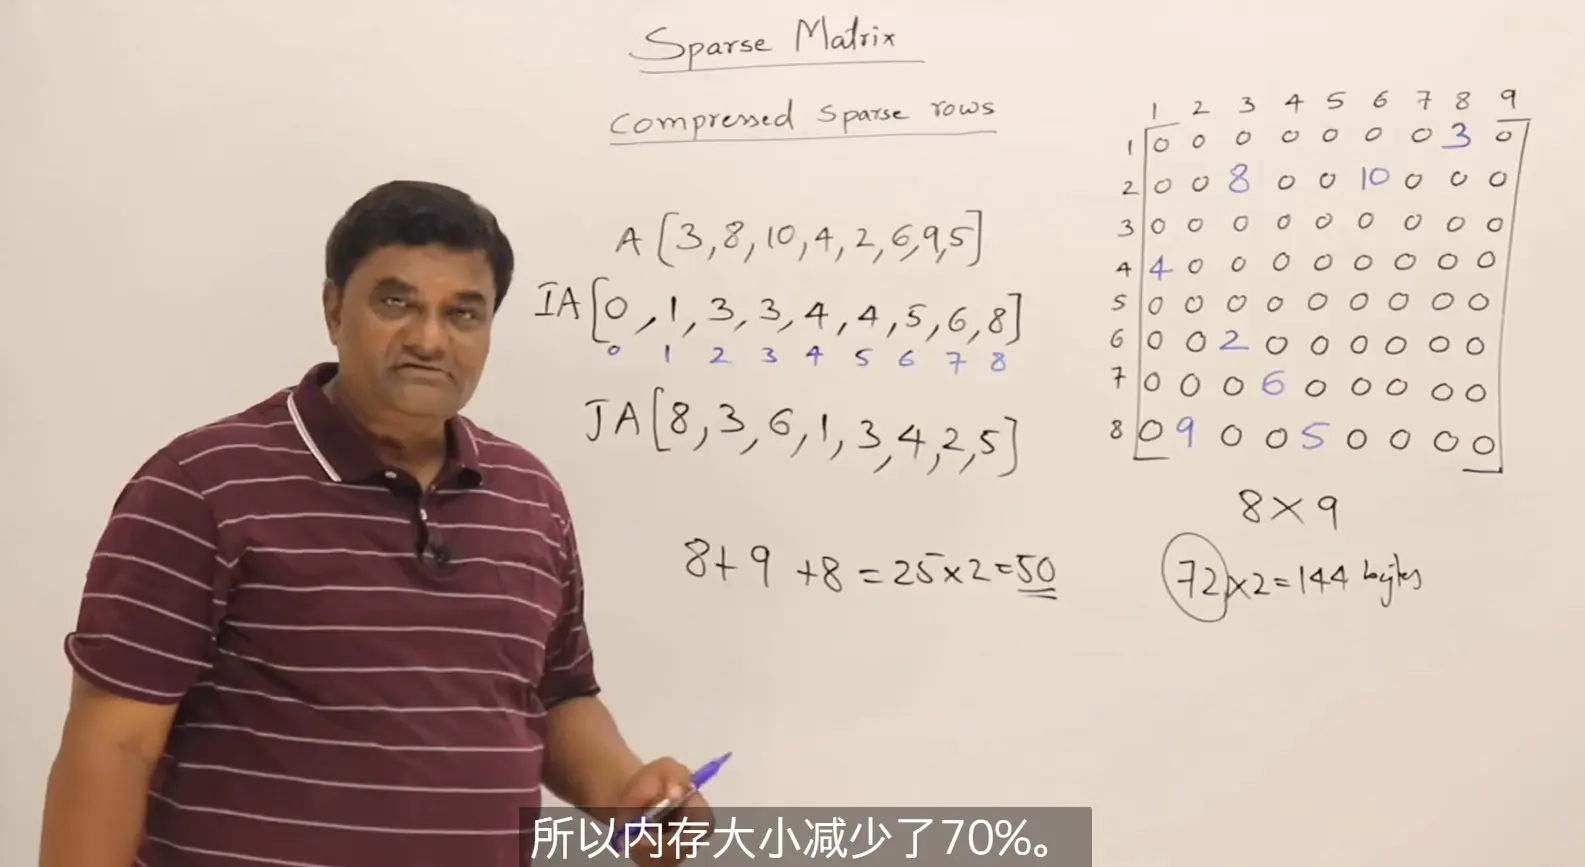 Sparse Matrix
Compressed Sparse rows
A [3,8,10,4,2,6,9,5]
IA [0,1,3,3,4,4,5,6,8]
0 1 2 3 4 5 6 7 8
JA [8,3,6,1,3,4,2,5]
8+9+8=25×2=50
1 2 3 4 5 6 7 8 9
1 0 0 0 0 0 0 0 3 0
2 0 0 8 0 0 10 0 0 0
3 0 0 0 0 0 0 0 0 0
4 4 0 0 0 0 0 0 0 0
5 0 0 0 0 0 0 0 0 0
6 0 0 2 0 0 0 0 0 0
7 0 0 0 6 0 0 0 0 0
8 0 9 0 0 5 0 0 0 0
8×9
72×2=144 bytes
所以内存大小减少了70%。